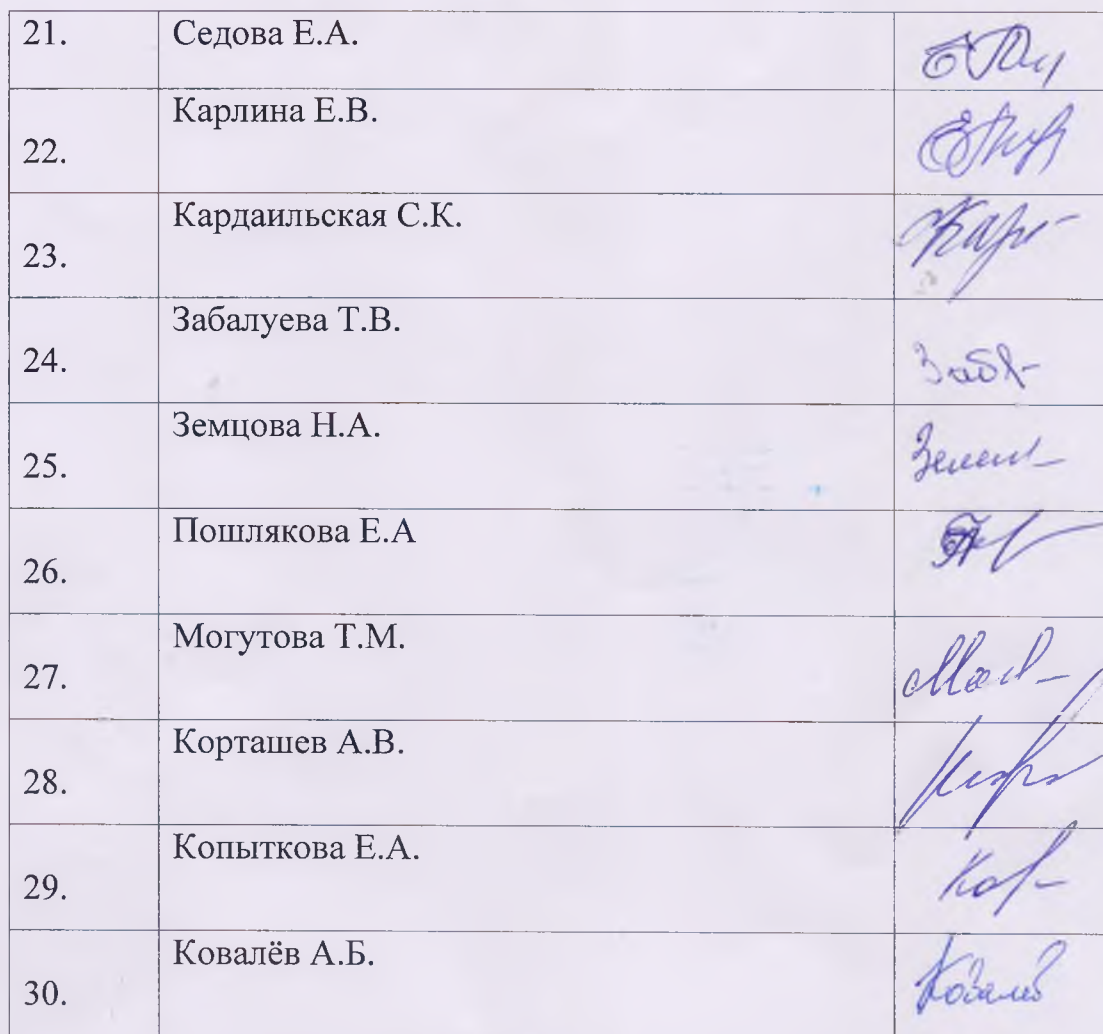 21. Седова Е.А.
22. Карлина Е.В.
23. Кардаильская С.К.
24. Забалуева Т.В.
25. Земцова Н.А.
26. Пошлякова Е.А
27. Могутова Т.М.
28. Корташев А.В.
29. Копыткова Е.А.
30. Ковалёв А.Б.